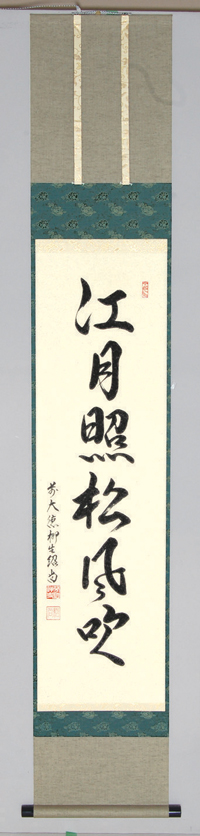 江月照松風吹
前大徳柳生紹尚